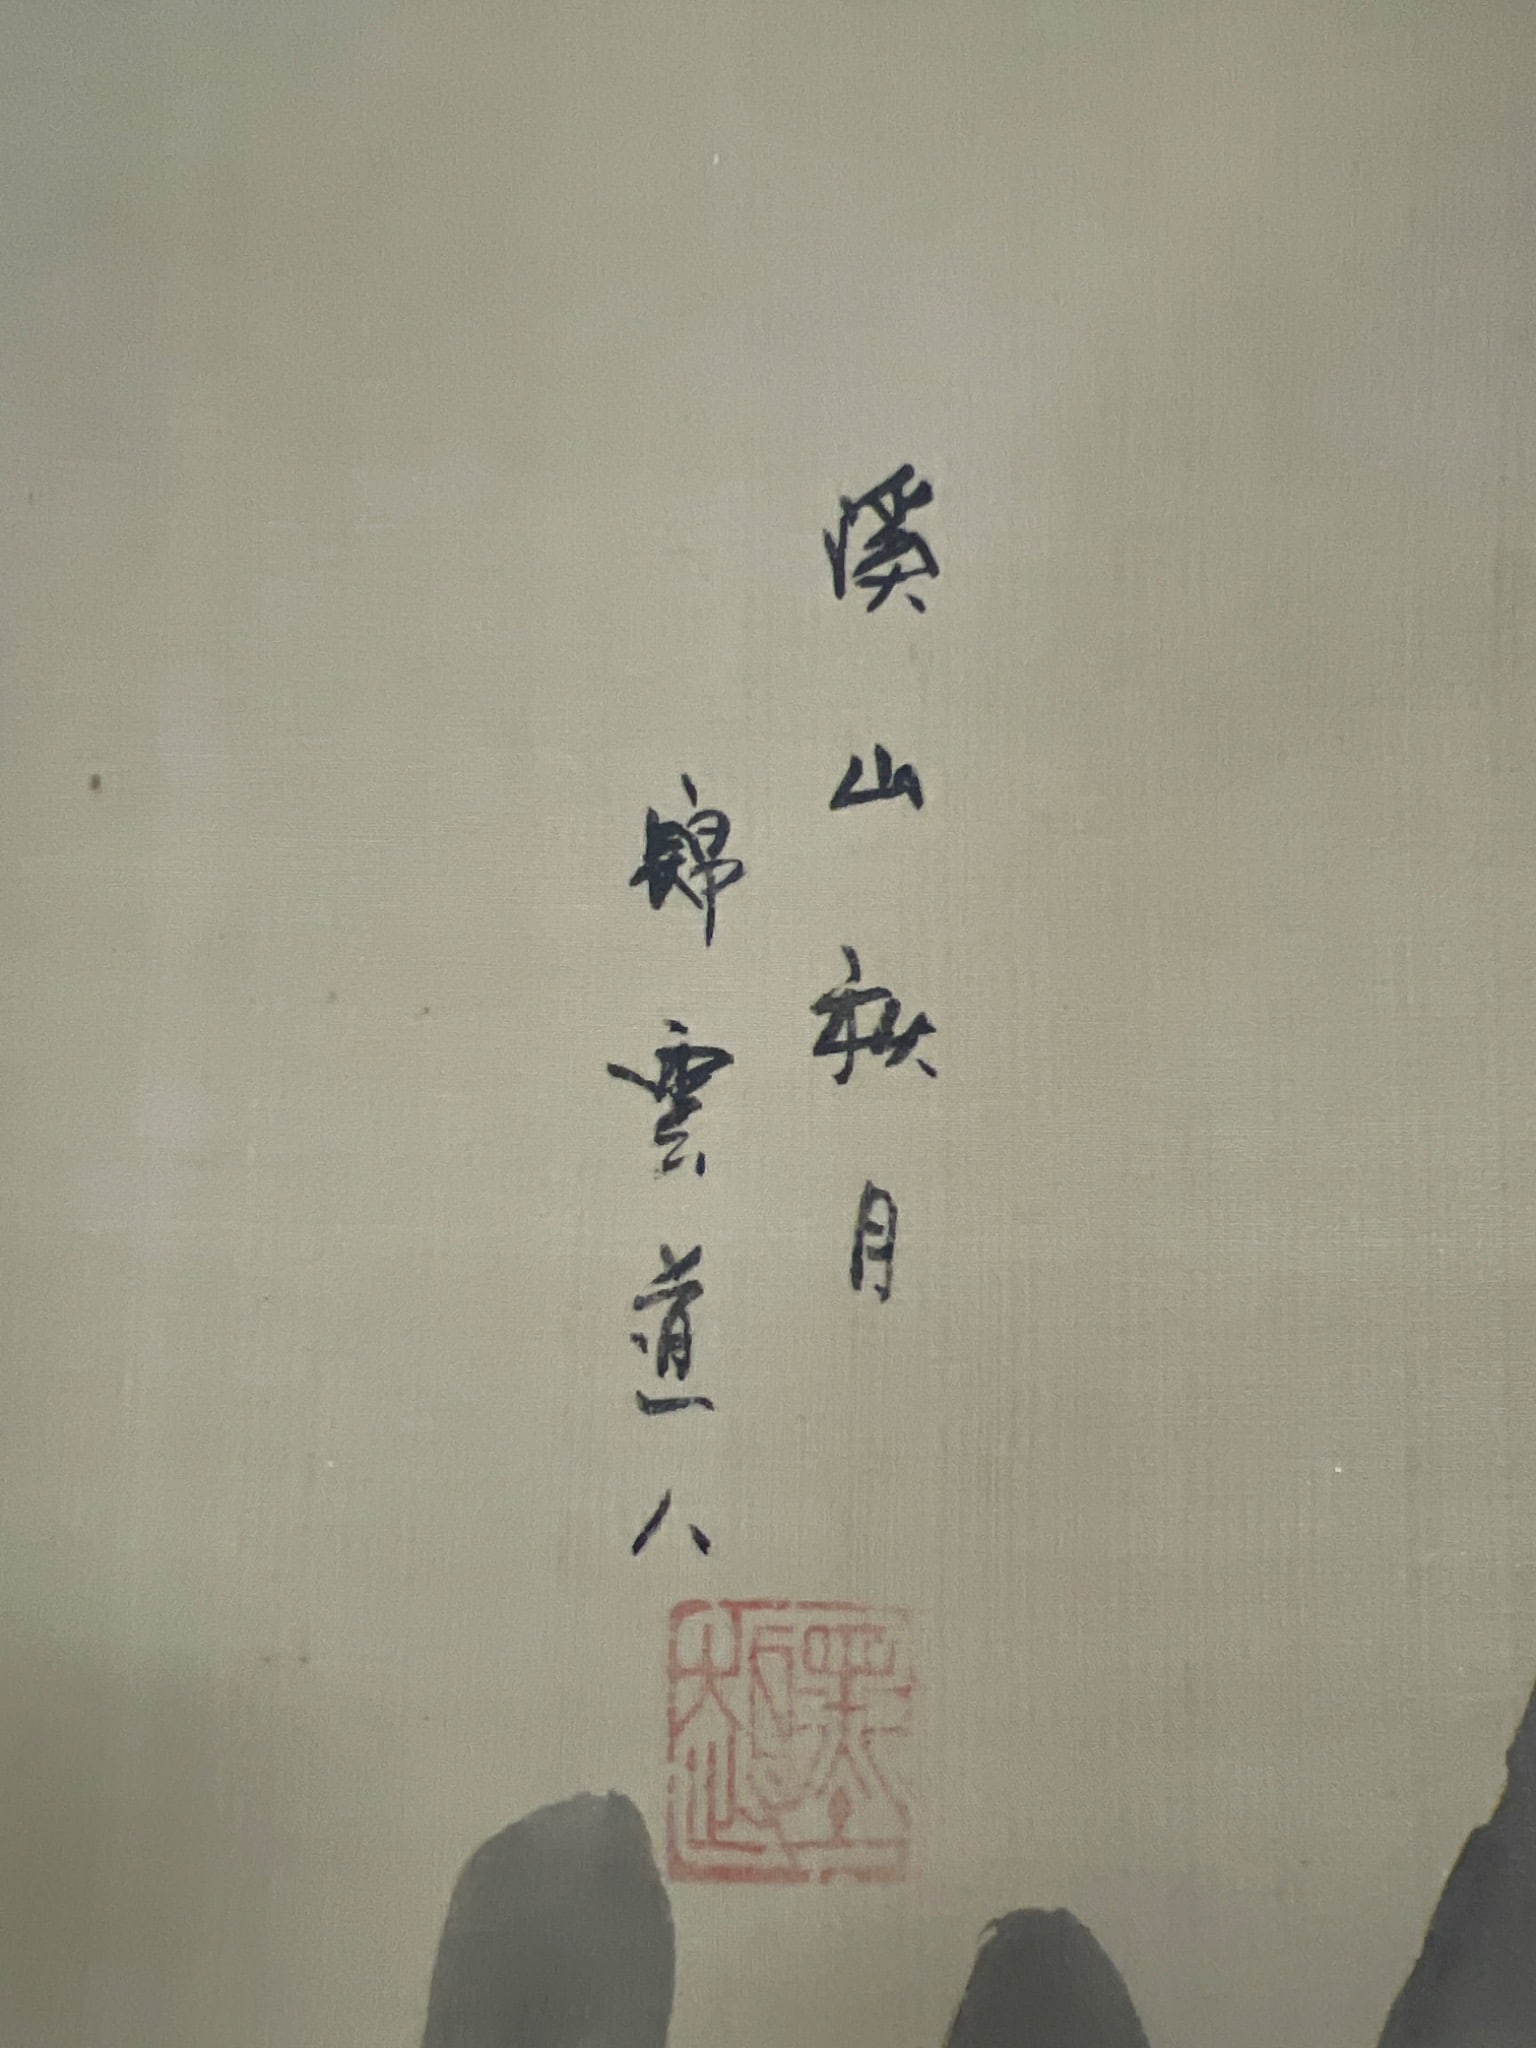 溪山秋月
錦雲道人